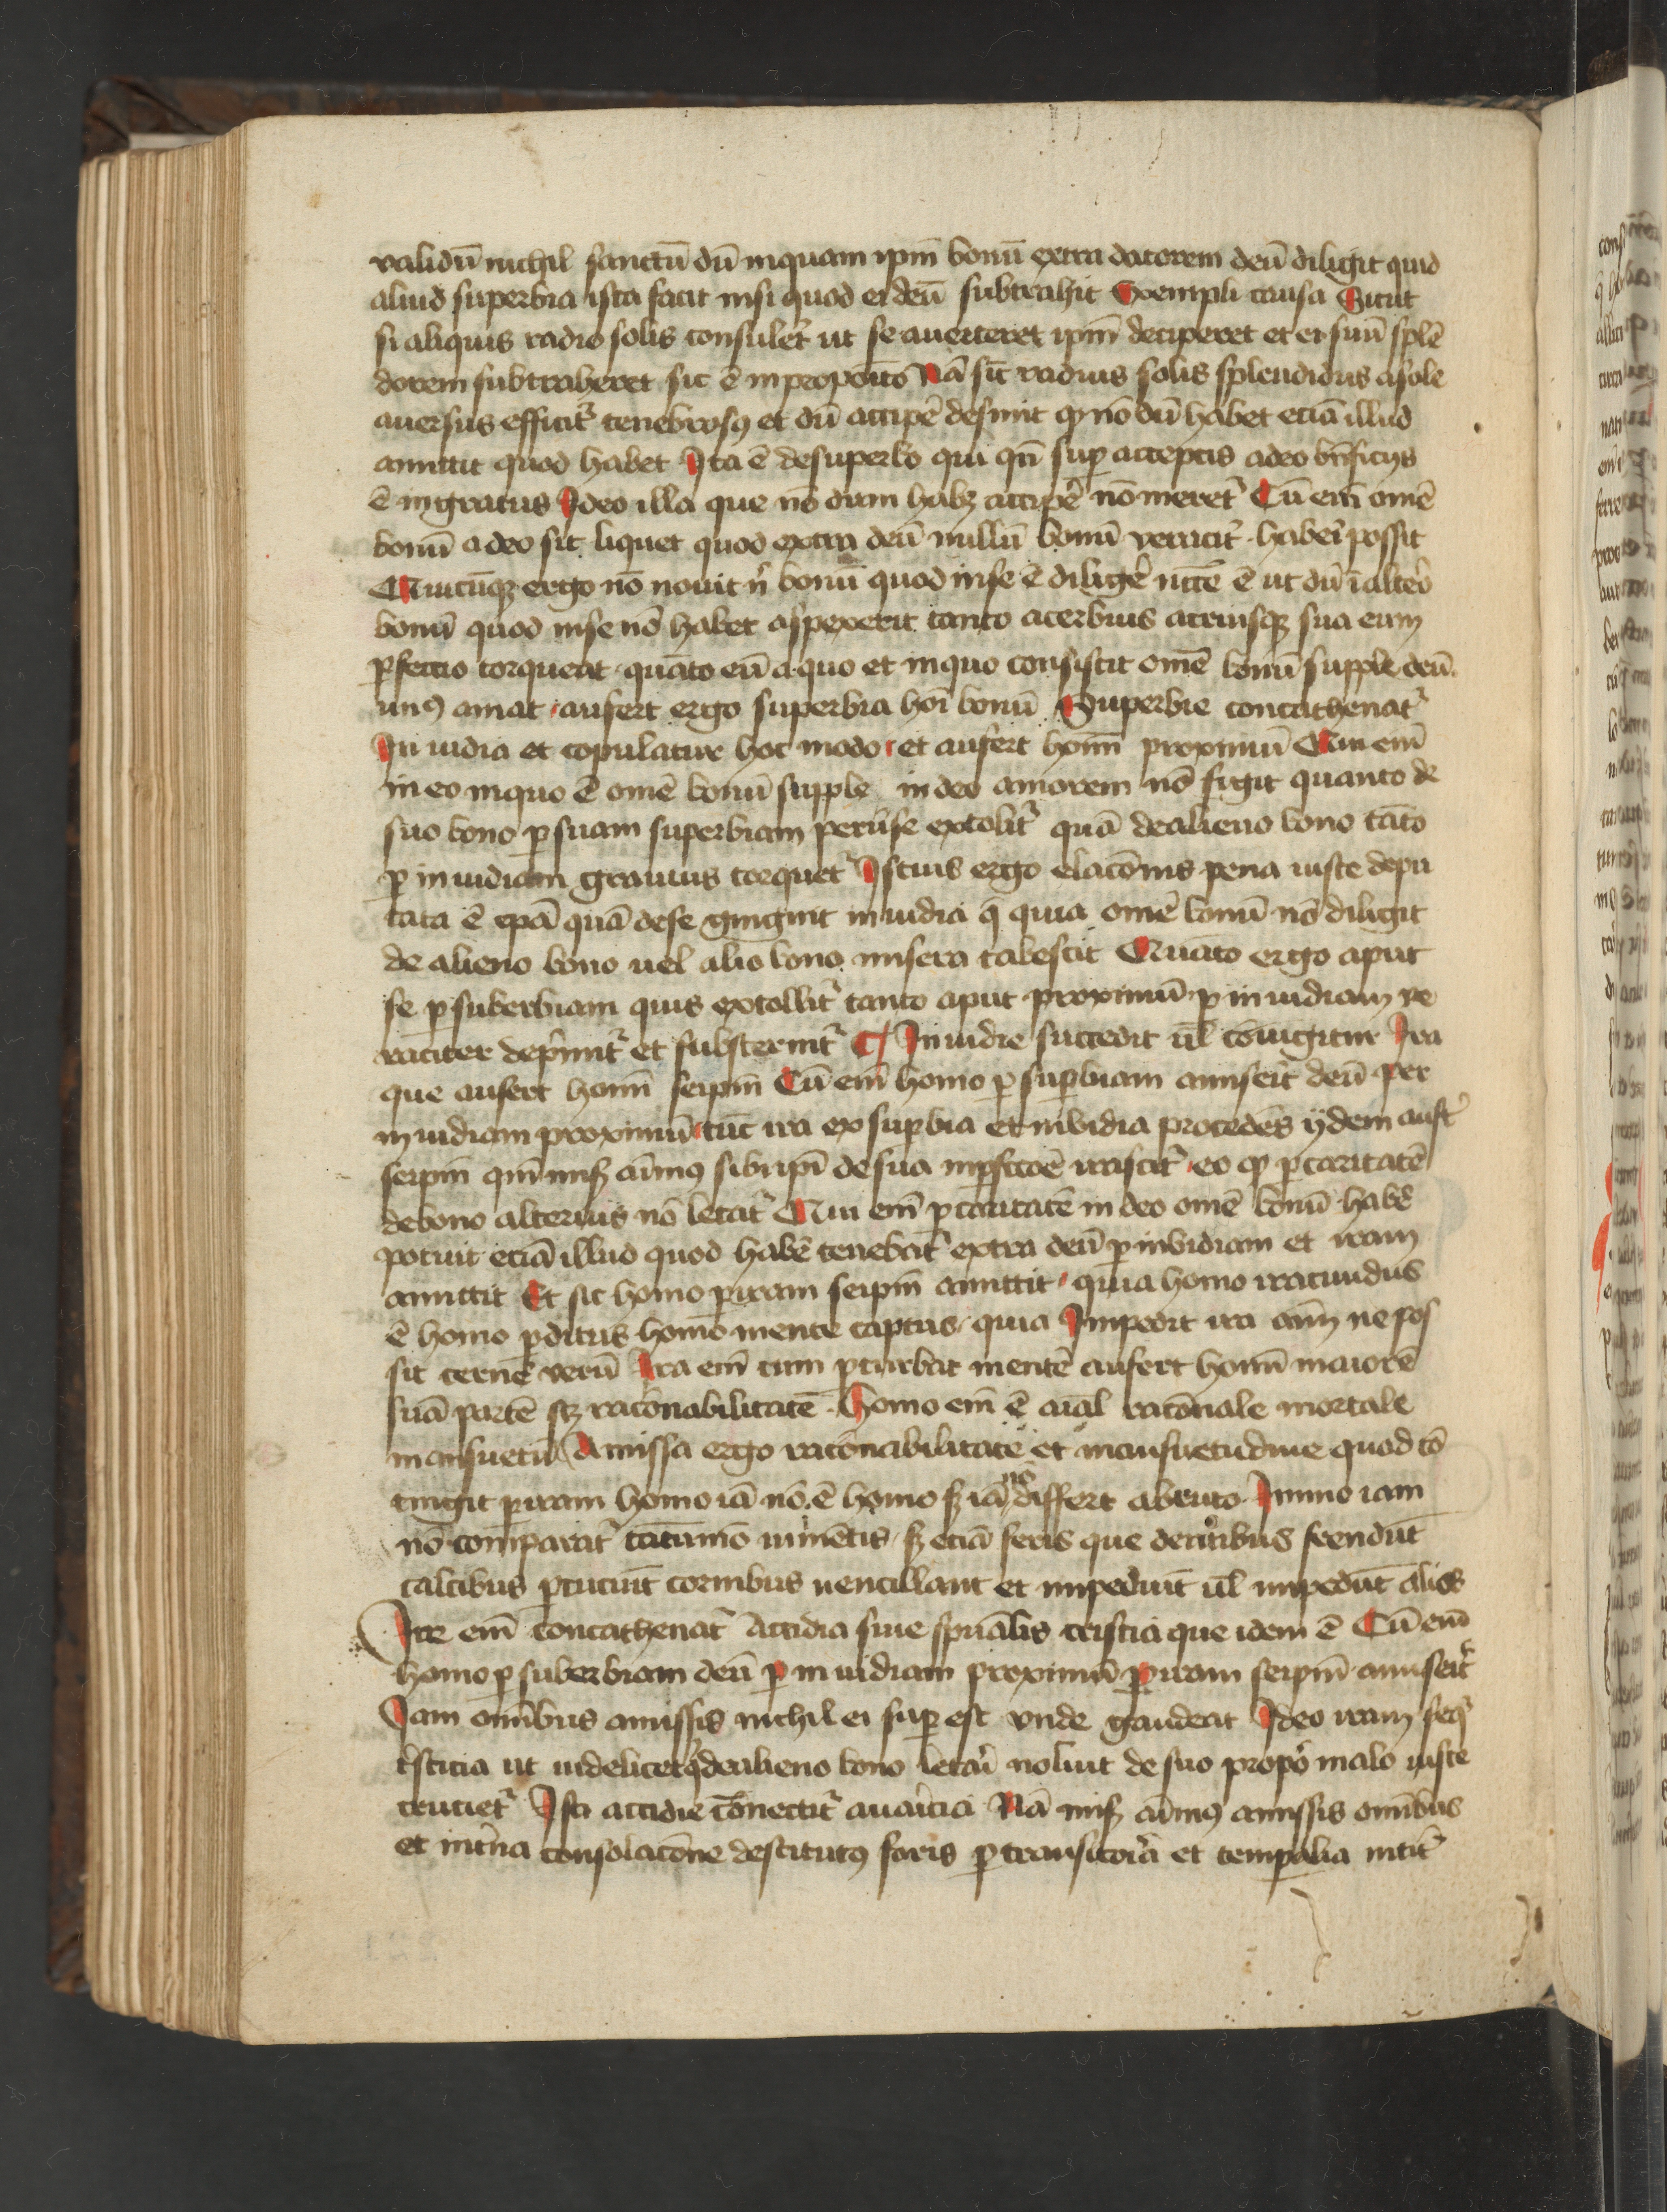 validū nichil sanctū dū inquam ipm̄ bonū extra datorem deū diligit quid
aliud superbia ista facit nisi quod ei deū subtrahit Exempli causa Sicut
si aliquis radio solis consuler̄t ut se auerteret ipm̄ deciperet et ei suū splē
dorem subtraheret sic ē in proposito Nā sic̄ radius solis splendidus a sole
auersus efficit᷑ tenebrosꝰ et dū accipē desinit qͦ nō dū habet eciā illud
amittit quod habet Ita ē de superbo qui qn̄ suꝑ acceptis a deo bn̄ficijs
ē ingratus Ideo illa que nō dum habꝫ accipē nō meret᷑ Cū em̄ omē
bonū a deo sit liquet quod extra deū nullū bonū veracit᷑ haberi possit
Quicūqꝫ ergo nō nouit n̄ bonū quod in se ē diligē n̄cc̄e ē ut dū ī alter̄o
bonū quod in se nō habet aspexerit tanto acerbius atriusqꝫ sua eum
ꝑfectio torqueat quāto eū a quo et in quo consistit omē bonū supple deū
minꝰ amat aufert ergo superbia hōi bonū Superbie concathenat᷑
In uidia et copulatur hoc modo et aufert homī proximū Qui em̄
in eo in quo ē omē bonū supple in deo amorem nō figit quanto de
suo bono ꝑ suam superbiam peruerse extolit᷑ quā de alieno bono tāto
ꝑ in uidiam grauius torquet᷑ Istius ergo elacōnis pena iuste depu
tata ē ipā quā de se gingnit in uidia q̄ quia omē bonū nō diligit
de alieno bono uel alio bono misera tabescit Quāto ergo aput
se ꝑ suberbiam quis extollit᷑ tanto aput proximū ꝑ in uidiam ve
raciter deprimit᷑ et substernit᷑ Inuidie succedit ūl coniūgitur Ira
que aufert homī seipm̄ Cū em̄ homo ꝑ suꝑbiam amiserit deū per
in uidiam proximū tūc ira ex suꝑbia et invidia procedēs ijdem aufer᷑t
seipm̄ qm̄ misꝫ aīmꝰ sibi ipī de sua imꝑfectōe irascit᷑ eo qͦ ꝑ caritatē
de bono alterius nō letat᷑ Qui em̄ ꝑ caritatē in deo omē bonū habē
potuit eciā illud quod habē tenebat᷑ extra deū ꝑ invidiam et iram
amittit Et sic homo ꝑ iram seipm̄ amittit quia homo iracundus
ē homo ꝑditus homo mente captus quia Impedit ira aīm ne pos
sit cernē verū Ira em̄ cum ꝑturbat mentē aufert homī maiorē
suā partē sꝫ racōnabilitatē Homo em̄ ē aīal racōnale mortale
mansuetū Amissa ergo racōnabilitate et mansuetudine quod cō
tingit ꝑ iram homo iā nō ē homo sꝫ iā nō differt a bruto Immo iam
nō comparat᷑ tātūmō iumētis sꝫ eciā feris que dentibus frendūt
calcibus ꝑcuciūt cornibus uencillant et impediūt ūl impedūt alios
Ire em̄ concathenat᷑ Accidia siue spūalis tristicia que idem ē Cū em̄
homo ꝑ suberbiam deū ꝑ in uidiam proximū ꝑ iram seipm̄ amiserit
Jam omībus amissis nichil ei suꝑ est vnde gaudeat Ideo iram seqr̄
tristicia ut uidelicet qͥ de alieno bono letari noluit de suo propō malo iuste
cruciet᷑ Isti accidie cōnectit᷑ auaricia Nā misꝫ aīmꝰ amissis omībus
et intn̄a consolacōne destitutꝰ foris ꝑ transitoria et temꝑalia nitit᷑